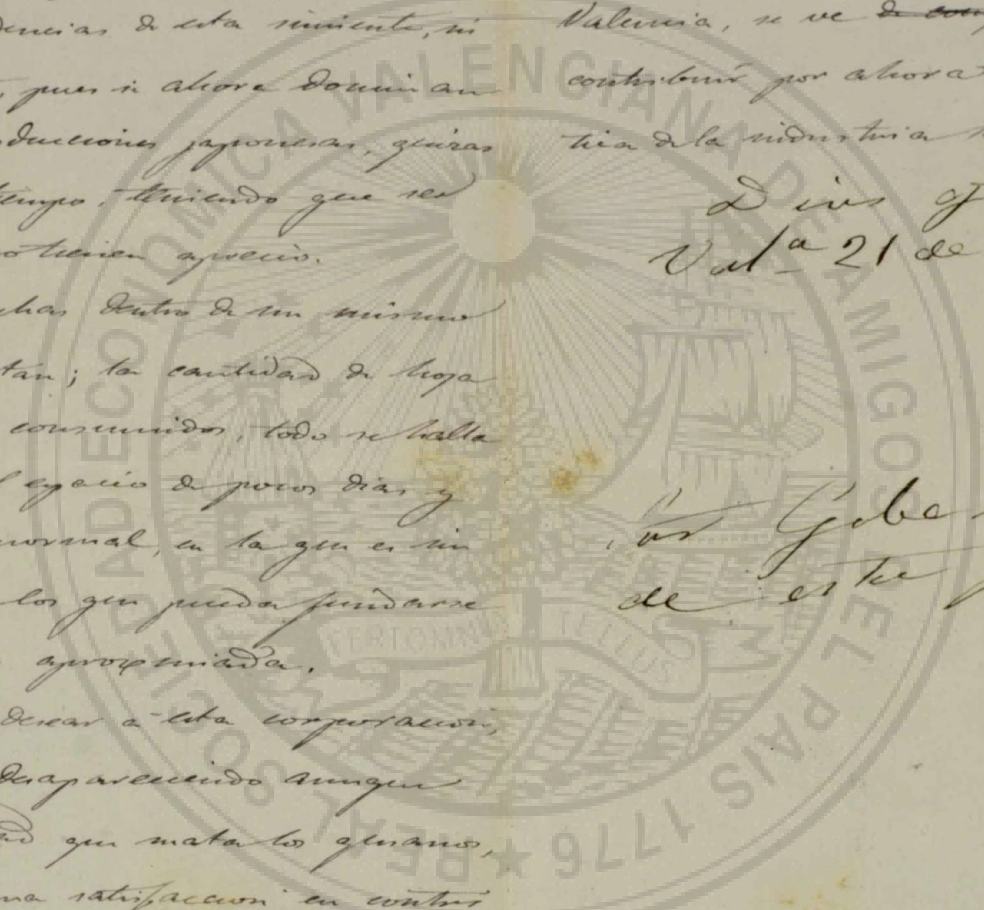 dencias de esta simiente, ni
, pues si ahora dominan
ducciones japonesas, quizas
tiempo, teniendo que ser
no tienen aprecio.
chas dentro de un mismo
tán; la cantidad de hoja
consumidos, todo se halla
l espacio de pocos dias y
normal, en la que es sin
los que pueda fundarse
aproximada.
desear a esta corporacion,
desaparecendo aunque
que mata los gusanos,
na satisfaccion en contri
Valencia, se ve de con
contribuir por ahora
tica de la industria s
Dios g
Val.ª 21 de
Gobe
de esta p
REAL SOCIEDAD ECONOMICA VALENCIANA DE AMIGOS DEL PAIS 1776
FERT OMNIA TELLUS